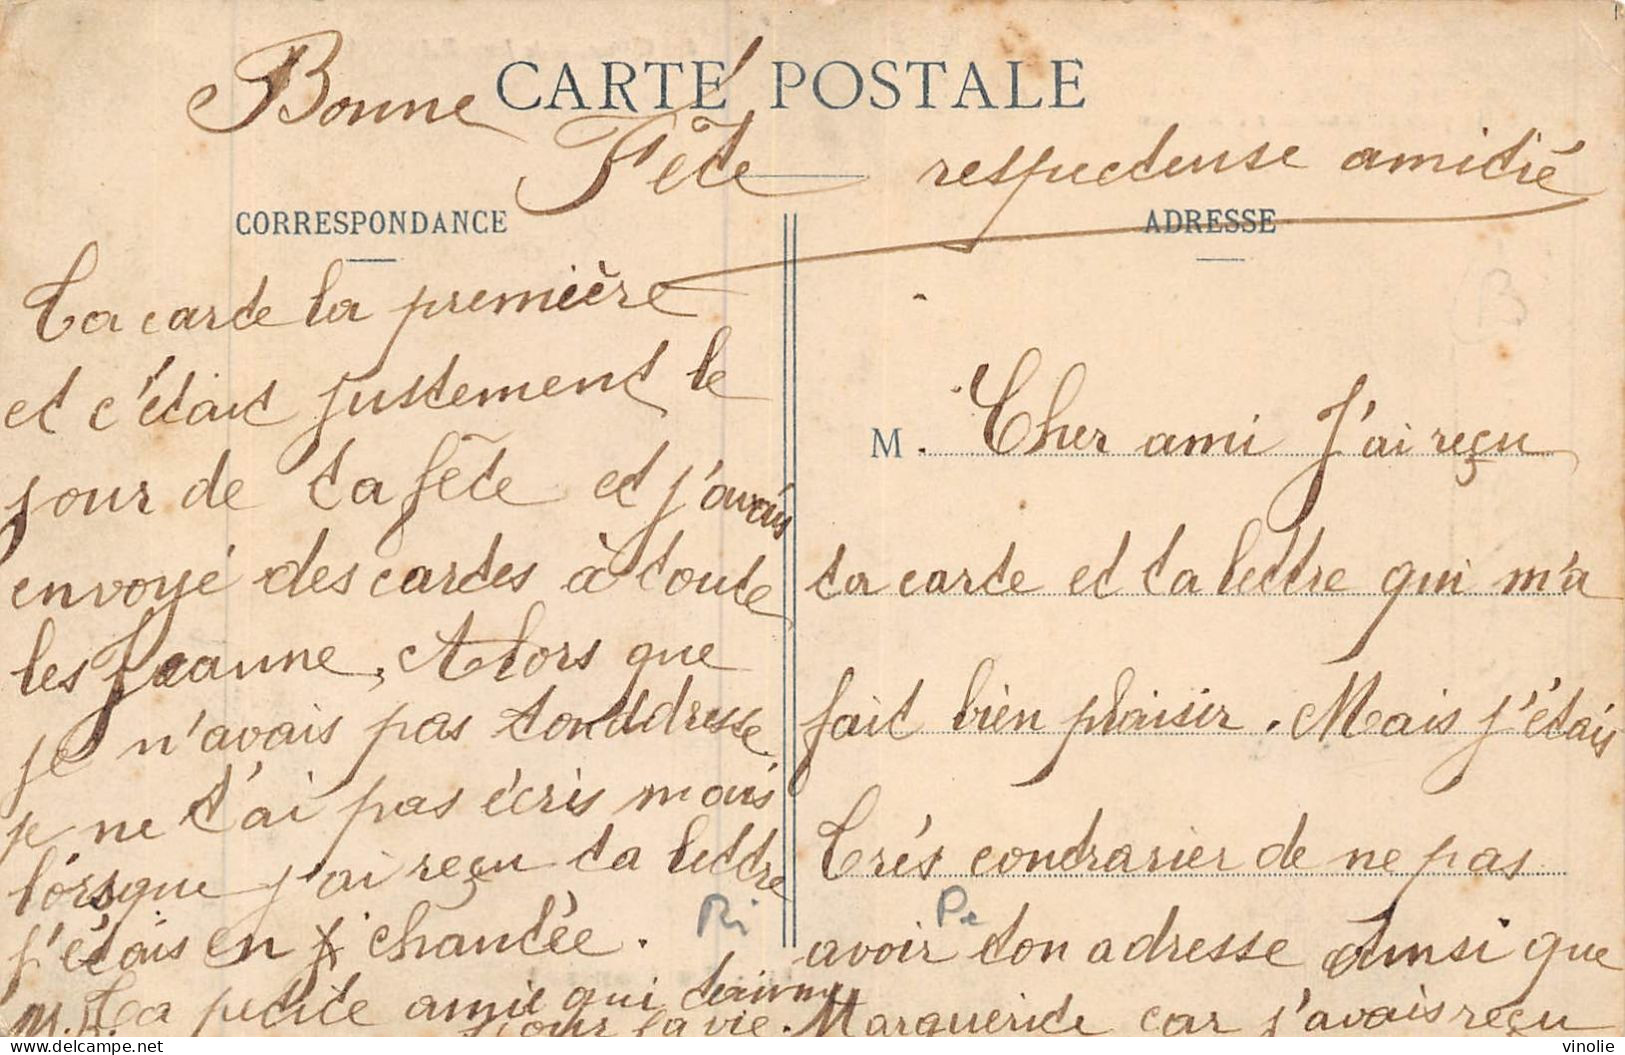 Bonne CARTE POSTALE
Fête respectueuse amitié
CORRESPONDANCE
ADRESSE
M. Cher ami J'ai reçu
ta carte et ta lettre qui m'a
fait bien plaisir. Mais j'étais
Très contrarier de ne pas
avoir ton adresse Ainsi que
Marguerite car j'avais reçu
Ta carte la première
et c'était justement le
jour de ta fête et j'avais
envoyé des cartes à toute
les Jeanne, Alors que
je n'avais pas ton addresse
je ne t'ai pas écris mais
lorsque j'ai reçu ta lettre
j'étais en chantée.
M.R. Ta petite amie qui t'aime
pour la vie.
Pe
Ri
B
vinolie
delcampe.net